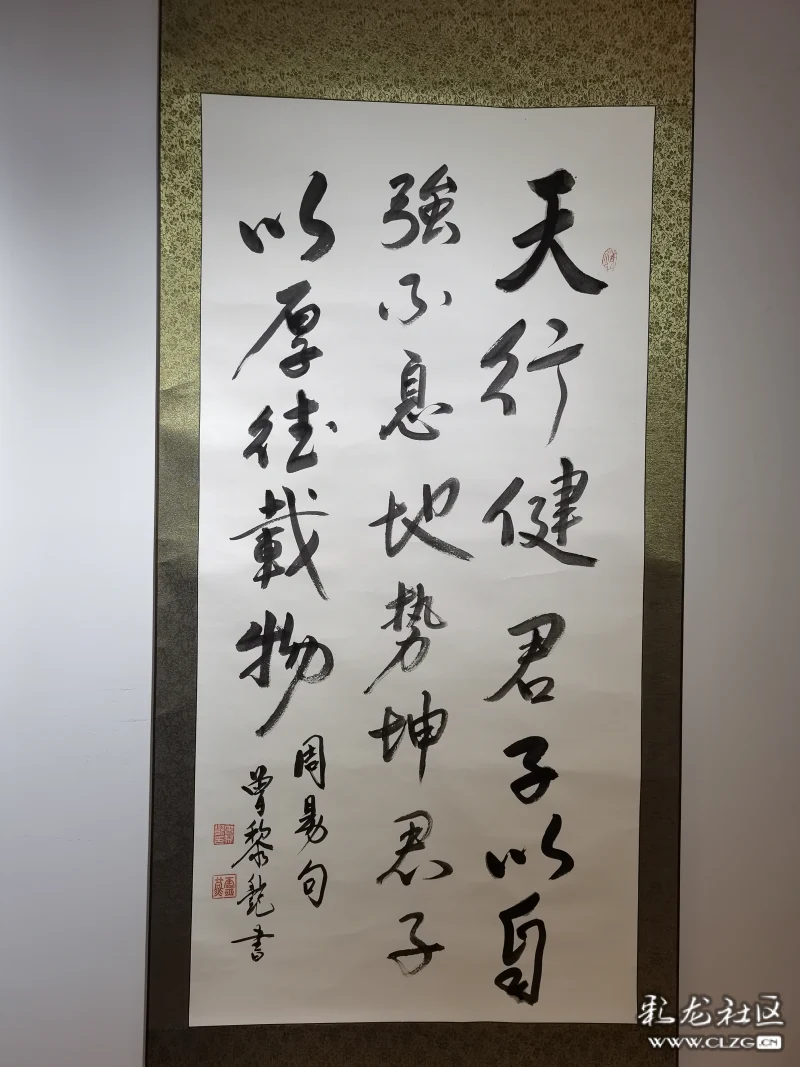 天行健君子以自
強不息地势坤君子
以厚德載物
周易句
曾黎龍書
彩龙社区
WWW.CLZG.CN